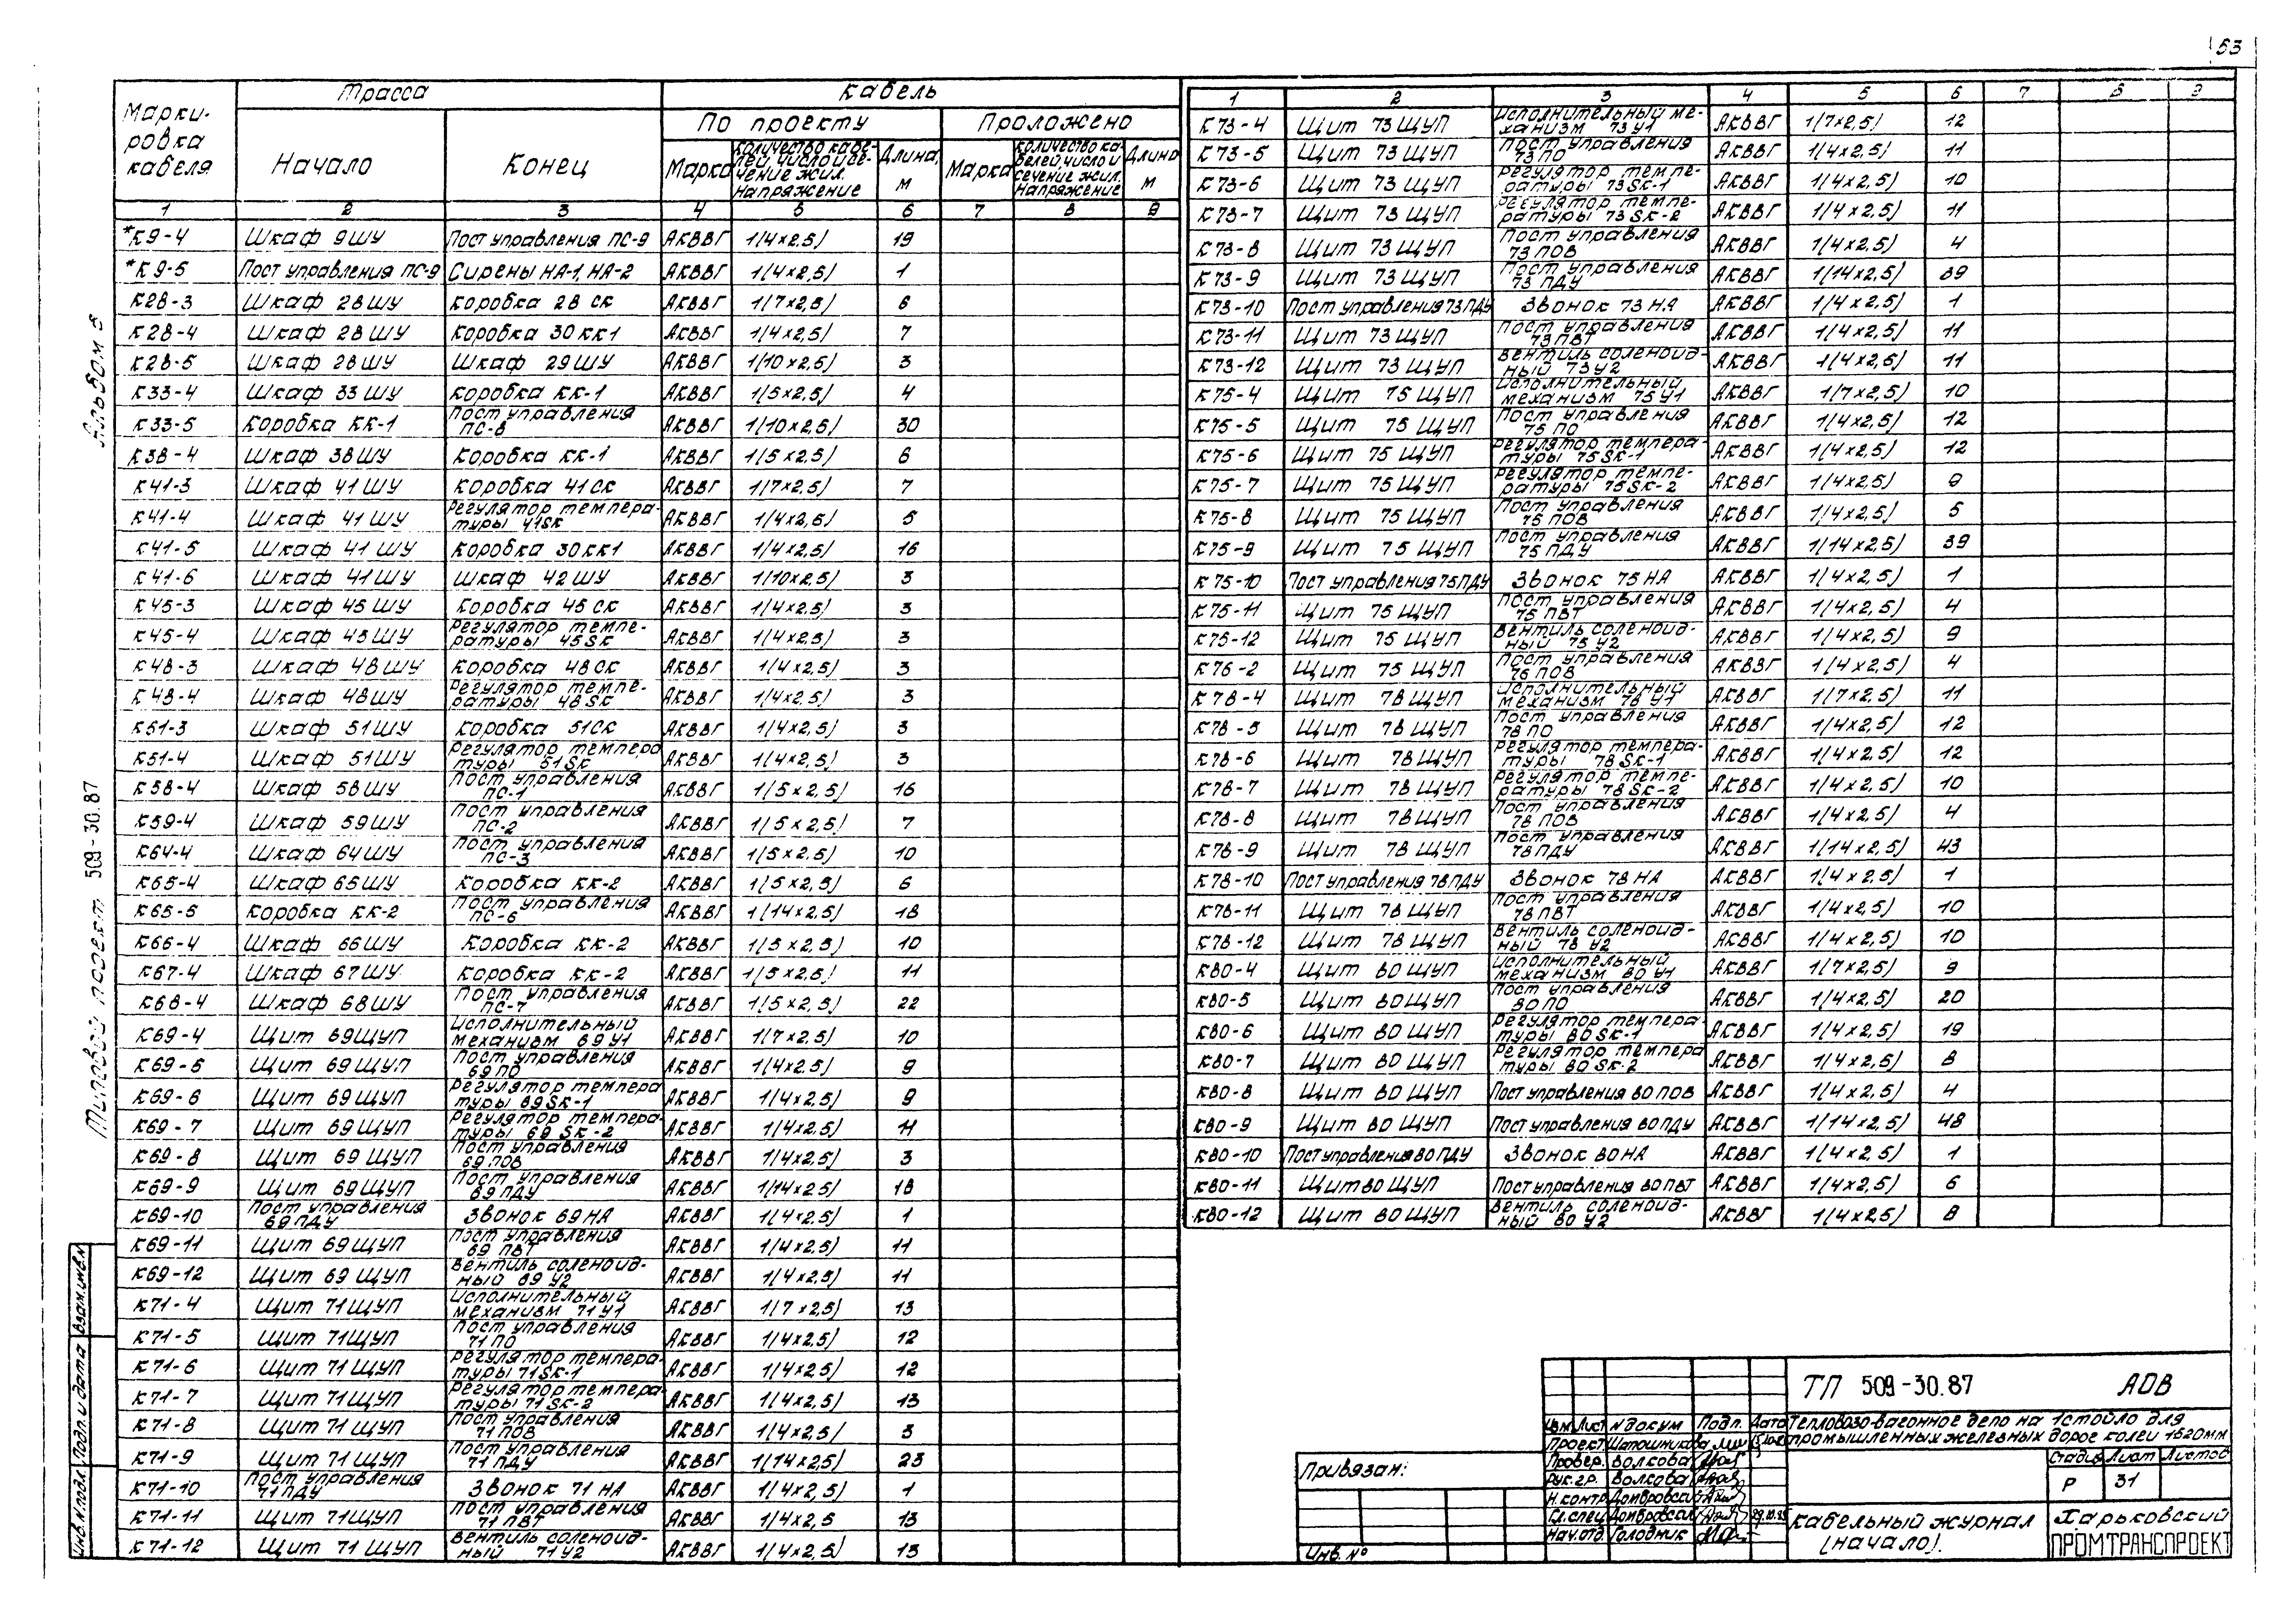 53
Альбом 5
Типовой проект 509-30.87
Марки-
ровка
кабеля
Трасса
Кабель
Начало
Конец
По проекту
Проложено
Марка
Количество кабе-
лей, число и се-
чение жил.
Напряжение
Длина,
м
Марка
Количество ка-
белей, число и
сечение жил.
Напряжение
Длина
м
1 2 3 4 5 6 7 8 9
*К9-4 Шкаф 9ШУ Пост управления ПС-9 АКВВГ 1(4×2,5) 19
*К9-5 Пост управления ПС-9 Сирены НА-1, НА-2 АКВВГ 1(4×2,5) 1
К28-3 Шкаф 28ШУ Коробка 28 СК АКВВГ 1(7×2,5) 6
К28-4 Шкаф 28ШУ Коробка 30 КК1 АКВВГ 1(4×2,5) 7
К28-5 Шкаф 28ШУ Шкаф 29ШУ АКВВГ 1(10×2,5) 3
К33-4 Шкаф 33ШУ Коробка КК-1 АКВВГ 1(5×2,5) 4
К33-5 Коробка КК-1 Пост управления
ПС-8 АКВВГ 1(10×2,5) 30
К38-4 Шкаф 38ШУ Коробка КК-1 АКВВГ 1(5×2,5) 6
К41-3 Шкаф 41ШУ Коробка 41СК АКВВГ 1(7×2,5) 7
К41-4 Шкаф 41ШУ Регулятор темпера-
туры 41SK АКВВГ 1(4×2,5) 5
К41-5 Шкаф 41ШУ Коробка 30КК1 АКВВГ 1(4×2,5) 16
К41-6 Шкаф 41ШУ Шкаф 42ШУ АКВВГ 1(10×2,5) 3
К45-3 Шкаф 45ШУ Коробка 45СК АКВВГ 1(4×2,5) 3
К45-4 Шкаф 45ШУ Регулятор темпе-
ратуры 45SK АКВВГ 1(4×2,5) 3
К48-3 Шкаф 48ШУ Коробка 48СК АКВВГ 1(4×2,5) 3
К48-4 Шкаф 48ШУ Регулятор темпе-
ратуры 48SK АКВВГ 1(4×2,5) 3
К51-3 Шкаф 51ШУ Коробка 51СК АКВВГ 1(4×2,5) 3
К51-4 Шкаф 51ШУ Регулятор темпера
туры 51SK АКВВГ 1(4×2,5) 3
К58-4 Шкаф 58ШУ Пост управления
ПС-1 АКВВГ 1(5×2,5) 16
К59-4 Шкаф 59ШУ Пост управления
ПС-2 АКВВГ 1(5×2,5) 7
К64-4 Шкаф 64ШУ Пост управления
ПС-3 АКВВГ 1(5×2,5) 10
К65-4 Шкаф 65ШУ Коробка КК-2 АКВВГ 1(5×2,5) 6
К65-5 Коробка КК-2 Пост управления
ПС-6 АКВВГ 1(14×2,5) 18
К66-4 Шкаф 66ШУ Коробка КК-2 АКВВГ 1(5×2,5) 10
К67-4 Шкаф 67ШУ Коробка КК-2 АКВВГ 1(5×2,5) 11
К68-4 Шкаф 68ШУ Пост управления
ПС-7 АКВВГ 1(5×2,5) 22
К69-4 Щит 69ЩУП Исполнительный
механизм 69У1 АКВВГ 1(7×2,5) 10
К69-5 Щит 69ЩУП Пост управления
69ПО АКВВГ 1(4×2,5) 9
К69-6 Щит 69ЩУП Регулятор темпера
туры 69SK-1 АКВВГ 1(4×2,5) 9
К69-7 Щит 69ЩУП Регулятор темпера-
туры 69SK-2 АКВВГ 1(4×2,5) 11
К69-8 Щит 69ЩУП Пост управления
69ПОВ АКВВГ 1(4×2,5) 3
К69-9 Щит 69ЩУП Пост управления
69ПДУ АКВВГ 1(14×2,5) 18
К69-10 Пост управления
69ПДУ Звонок 69НА АКВВГ 1(4×2,5) 1
К69-11 Щит 69ЩУП Пост управления
69 ПВТ АКВВГ 1(4×2,5) 11
К69-12 Щит 69ЩУП Вентиль соленоид-
ный 69 У2 АКВВГ 1(4×2,5) 11
К71-4 Щит 71ЩУП Исполнительный
механизм 71У1 АКВВГ 1(7×2,5) 13
К71-5 Щит 71ЩУП Пост управления
71ПО АКВВГ 1(4×2,5) 12
К71-6 Щит 71ЩУП Регулятор темпера-
туры 71SK-1 АКВВГ 1(4×2,5) 12
К71-7 Щит 71ЩУП Регулятор темпера-
туры 71SK-2 АКВВГ 1(4×2,5) 13
К71-8 Щит 71ЩУП Пост управления
71ПОВ АКВВГ 1(4×2,5) 3
К71-9 Щит 71ЩУП Пост управления
71ПДУ АКВВГ 1(14×2,5) 23
К71-10 Пост управления
71ПДУ Звонок 71НА АКВВГ 1(4×2,5) 1
К71-11 Щит 71ЩУП Пост управления
71ПВТ АКВВГ 1(4×2,5 13
К71-12 Щит 71ЩУП Вентиль соленоид-
ный 71У2 АКВВГ 1(4×2,5) 13
1 2 3 4 5 6 7 8 9
К73-4 Щит 73ЩУП Исполнительный ме-
ханизм 73У1 АКВВГ 1(7×2,5) 12
К73-5 Щит 73ЩУП Пост управления
73ПО АКВВГ 1(4×2,5) 11
К73-6 Щит 73ЩУП Регулятор темпе-
ратуры 73SK-1 АКВВГ 1(4×2,5) 10
К73-7 Щит 73ЩУП Регулятор темпе-
ратуры 73SK-2 АКВВГ 1(4×2,5) 11
К73-8 Щит 73ЩУП Пост управления
73ПОВ АКВВГ 1(4×2,5) 4
К73-9 Щит 73ЩУП Пост управления
73ПДУ АКВВГ 1(14×2,5) 39
К73-10 Пост управления 73ПДУ Звонок 73НА АКВВГ 1(4×2,5) 1
К73-11 Щит 73ЩУП Пост управления
73ПВТ АКВВГ 1(4×2,5) 11
К73-12 Щит 73ЩУП Вентиль соленоид-
ный 73У2 АКВВГ 1(4×2,5) 11
К75-4 Щит 75ЩУП Исполнительный
механизм 75У1 АКВВГ 1(7×2,5) 10
К75-5 Щит 75ЩУП Пост управления
75ПО АКВВГ 1(4×2,5) 12
К75-6 Щит 75ЩУП Регулятор темпера-
туры 75SK-1 АКВВГ 1(4×2,5) 12
К75-7 Щит 75ЩУП Регулятор темпе-
ратуры 75SK-2 АКВВГ 1(4×2,5) 9
К75-8 Щит 75ЩУП Пост управления
75ПОВ АКВВГ 1(4×2,5) 5
К75-9 Щит 75ЩУП Пост управления
75ПДУ АКВВГ 1(14×2,5) 39
К75-10 Пост управления 75ПДУ Звонок 75НА АКВВГ 1(4×2,5) 1
К75-11 Щит 75ЩУП Пост управления
75ПВТ АКВВГ 1(4×2,5) 4
К75-12 Щит 75ЩУП Вентиль соленоид-
ный 75У2 АКВВГ 1(4×2,5) 9
К76-2 Щит 75ЩУП Пост управления
76ПОВ АКВВГ 1(4×2,5) 4
К78-4 Щит 78ЩУП Исполнительный
механизм 78У1 АКВВГ 1(7×2,5) 11
К78-5 Щит 78ЩУП Пост управления
78ПО АКВВГ 1(4×2,5) 12
К78-6 Щит 78ЩУП Регулятор темпера-
туры 78SK-1 АКВВГ 1(4×2,5) 12
К78-7 Щит 78ЩУП Регулятор темпе-
ратуры 78SK-2 АКВВГ 1(4×2,5) 10
К78-8 Щит 78ЩУП Пост управления
78ПОВ АКВВГ 1(4×2,5) 4
К78-9 Щит 78ЩУП Пост управления
78ПДУ АКВВГ 1(14×2,5) 43
К78-10 Пост управления 78ПДУ Звонок 78НА АКВВГ 1(4×2,5) 1
К78-11 Щит 78ЩУП Пост управления
78ПВТ АКВВГ 1(4×2,5) 10
К78-12 Щит 78ЩУП Вентиль соленоид-
ный 78У2 АКВВГ 1(4×2,5) 10
К80-4 Щит 80ЩУП Исполнительный
механизм 80У1 АКВВГ 1(7×2,5) 9
К80-5 Щит 80ЩУП Пост управления
80ПО АКВВГ 1(4×2,5) 20
К80-6 Щит 80ЩУП Регулятор темпера-
туры 80SK-1 АКВВГ 1(4×2,5) 19
К80-7 Щит 80ЩУП Регулятор темпера
туры 80SK-2 АКВВГ 1(4×2,5) 8
К80-8 Щит 80ЩУП Пост управления 80ПОВ АКВВГ 1(4×2,5) 4
К80-9 Щит 80ЩУП Пост управления 80ПДУ АКВВГ 1(14×2,5) 48
К80-10 Пост управления 80ПДУ Звонок 80НА АКВВГ 1(4×2,5) 1
К80-11 Щит 80ЩУП Пост управления 80ПВТ АКВВГ 1(4×2,5) 6
К80-12 Щит 80ЩУП Вентиль соленоид-
ный 80У2 АКВВГ 1(4×2,5) 8
Взам.инв.№
Подп. и дата
Инв.№подл.
Привязан:
Инв. №
ТП 509-30.87 АОВ
Изм. Лист № докум Подп. Дата
Проект Шапошникова
Провер. Волкова
Рук.гр. Волкова
Н.контр Домбровский
Гл.спец Домбровский
Нач.отд Голодник
Тепловозо-вагонное депо на 1 стойло для
промышленных железных дорог колеи 1520мм
Стадия Лист Листов
Р 31
Кабельный журнал
(начало).
Харьковский
ПРОМТРАНСПРОЕКТ